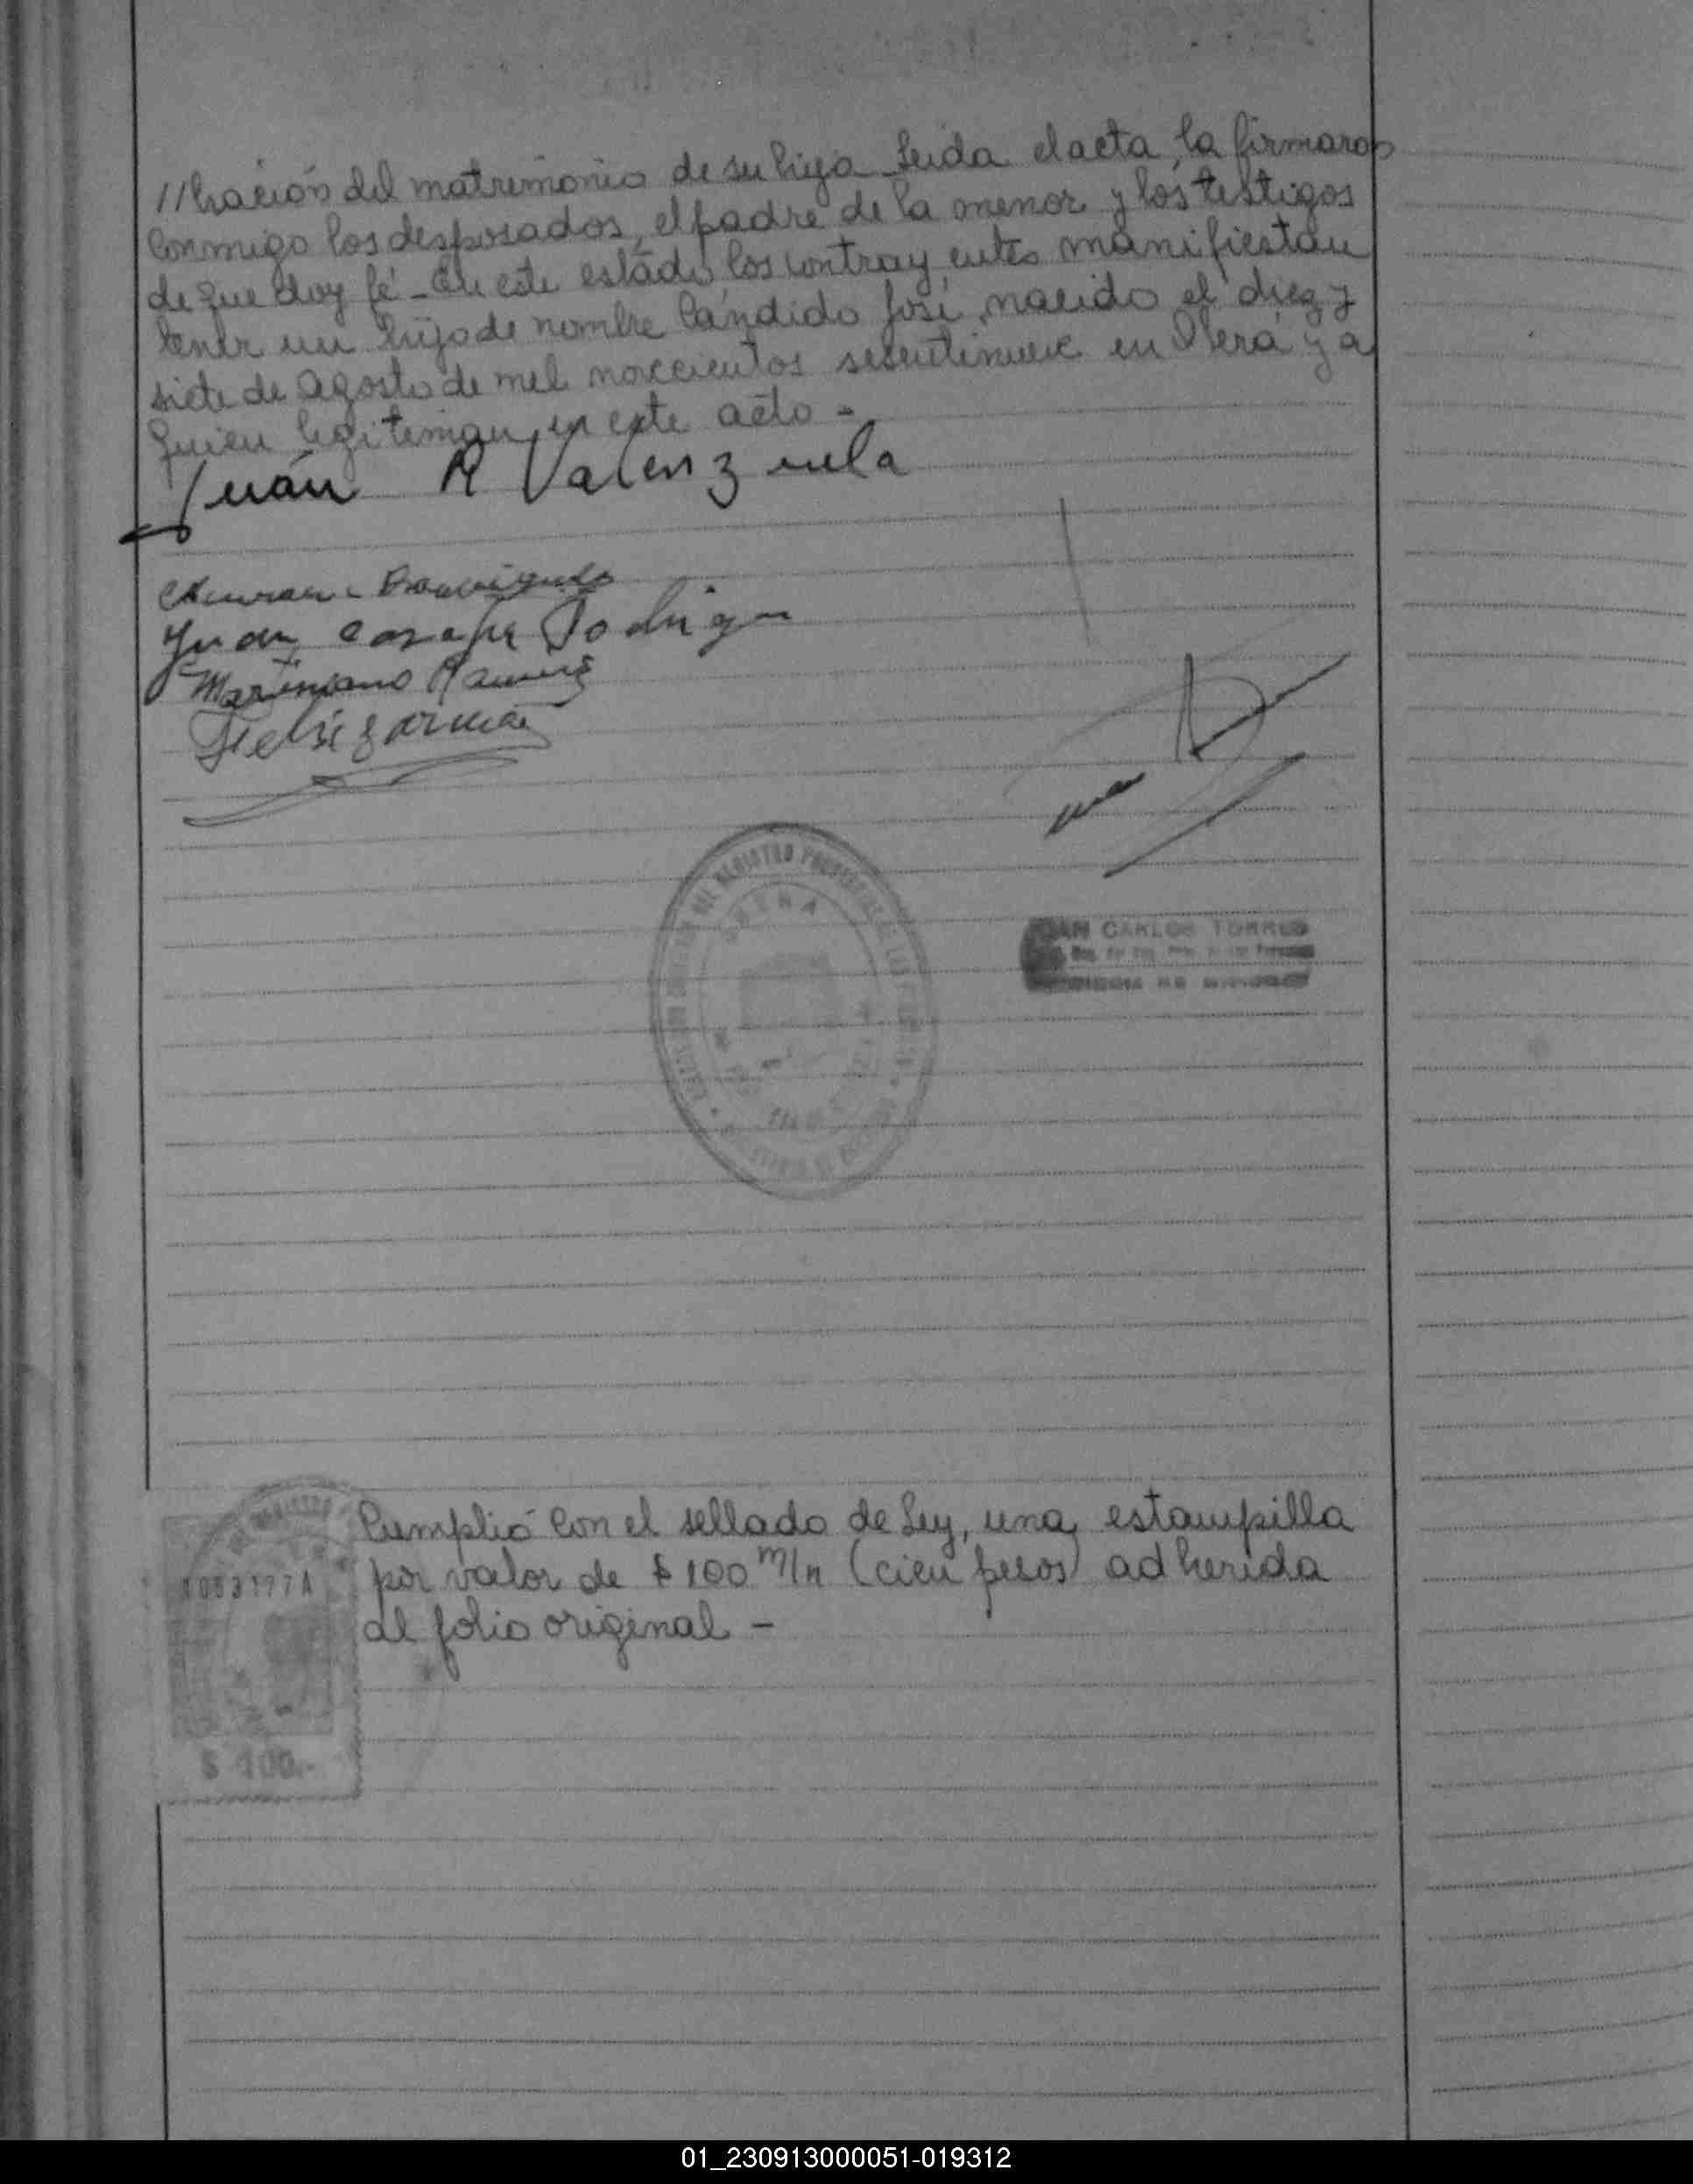 //bración del matrimonio de su hija - Leida el acta, la firmaron
conmigo los desposados, el padre de la menor y los testigos
de que doy fé - En este estado los contrayentes manifiestan
tener un hijo de nombre Cándido José, nacido el diez y
siete de agosto de mil novecientos sesentinueve en Oberá y a
quien legitiman en este acto -
Juán R Valenzuela
Juan
Mariniano
Felix
DEL REGISTRO PROVINCIAL DE LAS PERSONAS
JUAN CARLOS TORRES
Cumplió con el sellado de Ley, una estampilla
1053177A
por valor de $ 100 m/n (cien pesos) adherida
al folio original -
$ 100.-
01_230913000051-019312